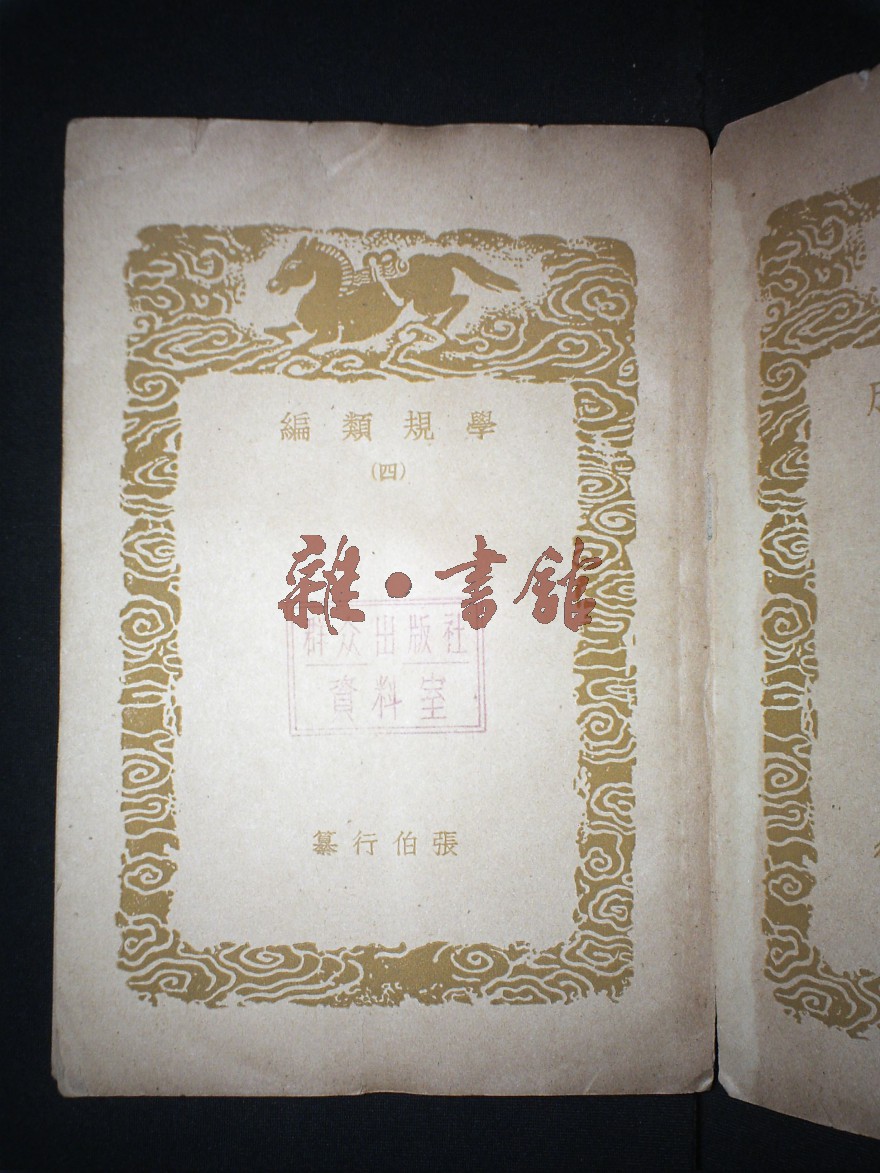 學規類編
(四)
雜·書館
群众出版社
資料室
張伯行纂